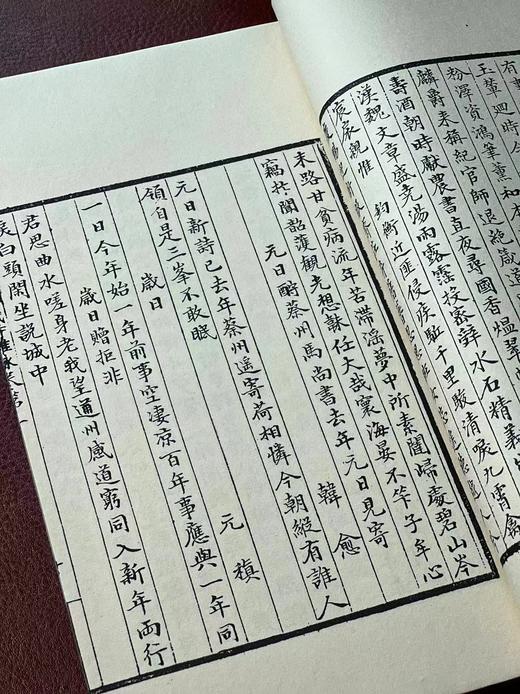 玉輦迴時令
粉澤資鴻筆薰和
麟爵來稱紀官師退絕箴道
壽酒朝時獻農書且夜尋國香煴翠
漢魏文章盛堯湯雨露霑投豪辭水石精義
宸扆親惟 鈞衡近匪侵疾驅千里駿清唳九霄禽
末路甘貧病流年苦滯淫夢中所素閣歸處碧山岑
竊抃聞韶濩觀光想誅任大哉寰海晏不笇子牟心
元日酬蔡州馬尚書去年元日見寄
韓 愈
元日新詩已去年蔡州遥寄荷相憐今朝縱有誰人
領自是三峯不敢眠
歲日 元 稹
一日今年始一年前事空凄凉百年事應與一年同
歲日贈拒非
君思曲水嗟身老我望通州感道窮同入新年兩行
淚白頭閑坐說城中